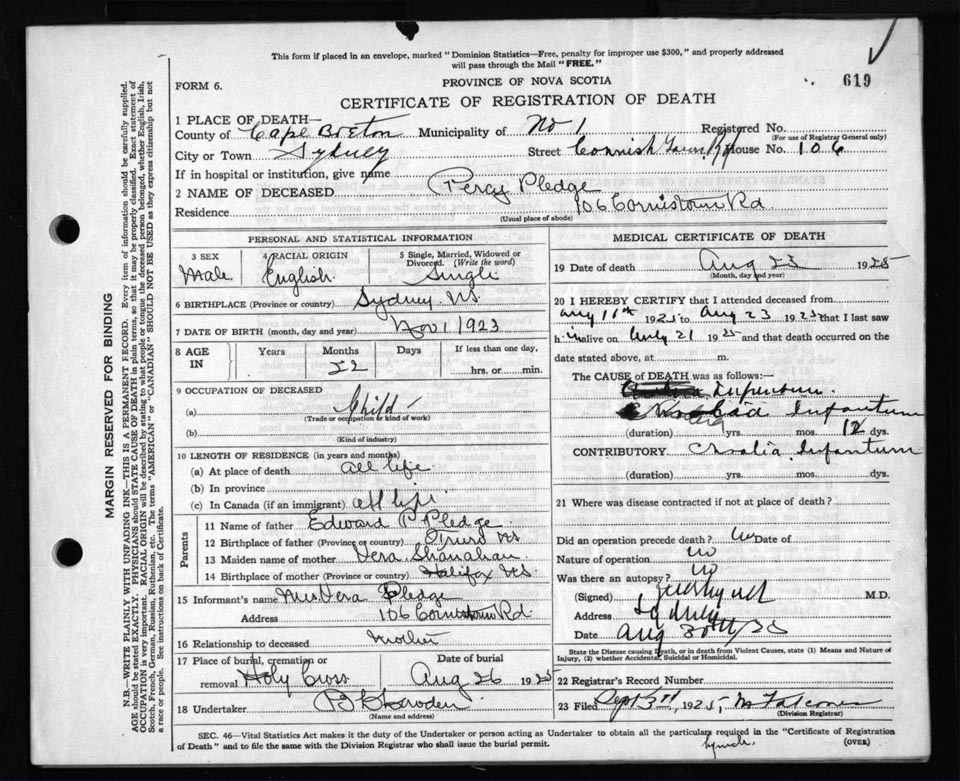 This form if placed in an envelope, marked "Dominion Statistics—Free, penalty for improper use $300," and properly addressed
will pass through the Mail "FREE."
619
FORM 6.
PROVINCE OF NOVA SCOTIA
CERTIFICATE OF REGISTRATION OF DEATH
1 PLACE OF DEATH—
County of Cape Breton Municipality of No 1 Registered No.
(For use of Registrar General only)
City or Town Sydney Street House No. 106
If in hospital or institution, give name
2 NAME OF DECEASED Percy Pledge
Residence 106 Rd
(Usual place of abode)
PERSONAL AND STATISTICAL INFORMATION
3 SEX 4 RACIAL ORIGIN 5 Single, Married, Widowed or Divorced. (Write the word)
Male English Single
6 BIRTHPLACE (Province or country) Sydney NS
7 DATE OF BIRTH (month, day and year) Nov 1 1923
8 AGE IN Years Months Days If less than one day,
22 hrs. or min.
9 OCCUPATION OF DECEASED
(a) Child
(Trade or occupation or kind of work)
(b)
(Kind of industry)
10 LENGTH OF RESIDENCE (in years and months)
(a) At place of death all life
(b) In province
(c) In Canada (if an immigrant) all life
Parents
11 Name of father Edward P Pledge
12 Birthplace of father (Province or country) Truro NS
13 Maiden name of mother Vera Shanahan
14 Birthplace of mother (Province or country) Halifax NS
15 Informant's name Mrs Vera Pledge
Address 106 Rd
16 Relationship to deceased mother
17 Place of burial, cremation or removal Holy Cross Date of burial Aug 26 1925
18 Undertaker
(Name and address)
MEDICAL CERTIFICATE OF DEATH
19 Date of death Aug 23 1925
(Month, day and year)
20 I HEREBY CERTIFY that I attended deceased from
Aug 11th 1925 to Aug 23 1925 that I last saw
h im alive on Aug 21 1925 and that death occurred on the
date stated above, at m.
The CAUSE of DEATH was as follows:—
Infantum
(duration) yrs. mos. 12 dys.
CONTRIBUTORY Infantum
(duration) yrs. mos. dys.
21 Where was disease contracted if not at place of death?
Did an operation precede death? no Date of
Nature of operation no
Was there an autopsy? no
(Signed) M.D.
Address Sydney
Date Aug 30th/25
State the Disease causing Death, or in death from Violent Causes, state (1) Means and Nature of
Injury, (2) whether Accidental, Suicidal or Homicidal.
22 Registrar's Record Number
23 Filed Sept 3rd, 1925,
(Division Registrar)
SEC. 46—Vital Statistics Act makes it the duty of the Undertaker or person acting as Undertaker to obtain all the particulars required in the "Certificate of Registration
of Death" and to file the same with the Division Registrar who shall issue the burial permit.
(OVER)
MARGIN RESERVED FOR BINDING
N.B.—WRITE PLAINLY WITH UNFADING INK—THIS IS A PERMANENT RECORD. Every item of information should be carefully supplied.
AGE should be stated EXACTLY. PHYSICIANS should STATE CAUSE OF DEATH in plain terms, so that it may be properly classified. Exact statement of
OCCUPATION is very important. RACIAL ORIGIN will be described by stating to what people or tongue the deceased person belonged, whether English, Irish,
Scotch, French, German, Russian, Ruthenian, etc. The terms "AMERICAN" or "CANADIAN" SHOULD NOT BE USED as they express citizenship but not
a race or people. See instructions on back of Certificate.